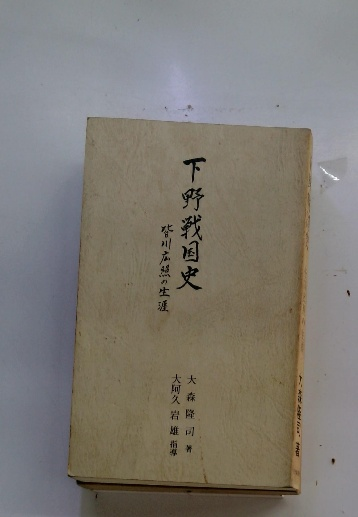 下野戦国史
皆川広照の生涯
大森隆司 著
大阿久岩雄 指導